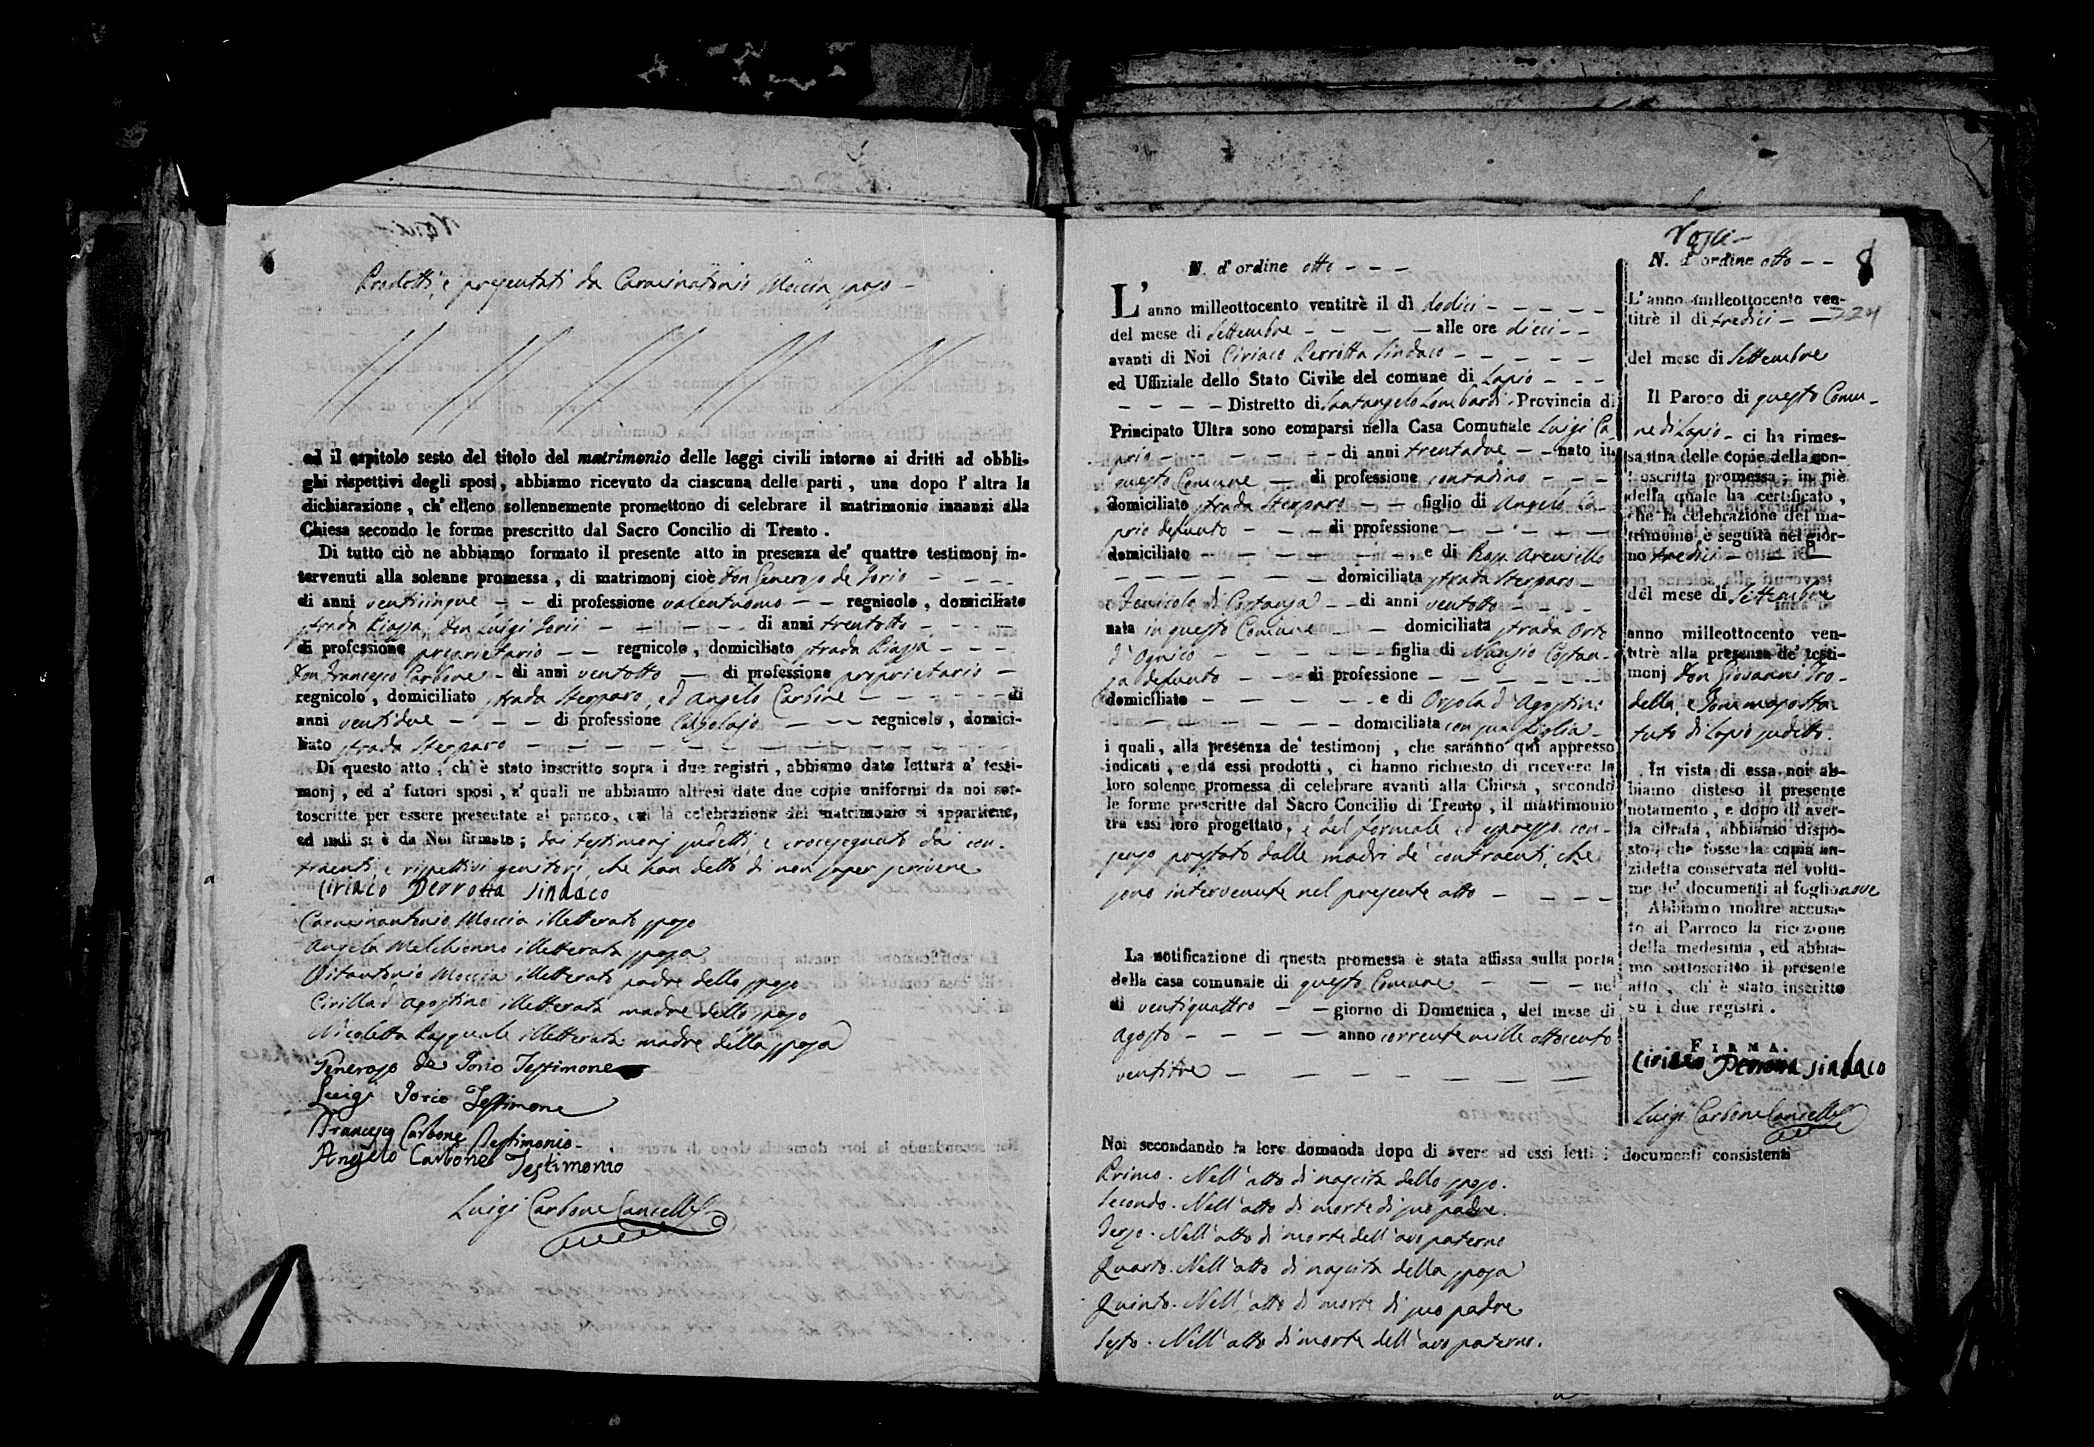 Prodotti, e presentati da Carminantonio Moccia sposo -
ed il capitolo sesto del titolo del matrimonio delle leggi civili intorno ai dritti ad obbli-
ghi rispettivi degli sposi, abbiamo ricevuto da ciascuna delle parti, una dopo l'altra la
dichiarazione, ch'elleno sollennemente promettono di celebrare il matrimonio innanzi alla
Chiesa secondo le forme prescritto dal Sacro Concilio di Trento.
Di tutto ciò ne abbiamo formato il presente atto in presenza de' quattro testimonj in-
tervenuti alla solenne promessa, di matrimonj cioè Don Generoso de Iorio - - - -
di anni venticinque - - di professione valentuomo - - regnicolo, domiciliato
strada Piazza, Don Luigi Iorii - - - - - di anni trentotto - - - -
di professione proprietario - - regnicolo, domiciliato strada Piazza - - -
Don Francesco Carbone - di anni ventotto - di professione proprietario -
regnicolo, domiciliato strada Sterparo, ed Angelo Carbone - - - - - di
anni ventidue - - - di professione Calzolajo - - - regnicolo, domici-
liato strada Sterparo - - - - - - - - - - -
Di questo atto, ch'è stato inscritto sopra i due registri, abbiamo dato lettura a' testi-
monj, ed a' futuri sposi, a' quali ne abbiamo altresì date due copie uniformi da noi sot-
toscritte per essere presentate al paroco, cui la celebrazione del matrimonio si appartiene,
ed indi si è da Noi firmato; dai testimonj sudetti, e crocesegnato dai con-
traenti, e rispettivi genitori, che han detto di non saper scrivere
Ciriaco Perrotta Sindaco
Carminantonio Moccia illetterato sposo
Angela Melchionno illetterata sposa
Vitantonio Moccia illetterato padre dello sposo
Cirilla d'Agostino illetterata madre dello sposo
Nicoletta Pasquale illetterata madre della sposa
Generoso de Iorio Testimone
Luigi Iorio Testimone
Francesco Carbone Testimonio
Angelo Carbone Testimonio
Luigi Carbone Cancelle
N. d'ordine otto - - -
L'anno milleottocento ventitrè il dì dodici - - - - -
del mese di Settembre - - - - - alle ore dieci - -
avanti di Noi Ciriaco Perrotta Sindaco - - - - -
ed Uffiziale dello Stato Civile del comune di Lapio - - -
- - - - Distretto di Santangelo Lombardi Provincia di
Principato Ultra sono comparsi nella Casa Comunale Luigi Ca-
prio - - - - - - - di anni trentadue - - nato in
questo Comune - di professione contadino - - -
domiciliato strada Sterparo - - figlio di Angelo Ca-
prio defunto - - - di professione - - - - -
domiciliato - - - - - - -, e di Rosa Areniello
- - - - - - - domiciliata strada Sterparo -
e Fenicola di Costanza - - di anni ventotto - - - -
nata in questo Comune - - domiciliata strada Orto
d'Ognico - - - - - - figlia di Nunzio Costan-
za defunto - - di professione - - - - - -
domiciliato - - - - - - e di Orsola d'Agostino
- - - - - - - domiciliata con sua figlia -
i quali, alla presenza de' testimonj, che saranno qui appresso
indicati, e da essi prodotti, ci hanno richiesto di ricevere la
loro solenne promessa di celebrare avanti alla Chiesa, secondo
le forme prescritte dal Sacro Concilio di Trento, il matrimonio
tra essi loro progettato, e del formale ed espresso con-
senso prestato dalle madri de' contraenti, che
sono intervenute nel presente atto - - - - -
La notificazione di questa promessa è stata affissa sulla porta
della casa comunale di questo Comune - - - nel
dì ventiquattro - - giorno di Domenica, del mese di
agosto - - - - anno corrente mille ottocento
ventitre - - - - - - - -
Noi secondando la loro domanda dopo di avere ad essi letti i documenti consistenti
Primo. Nell'atto di nascita dello sposo.
Secondo. Nell'atto di morte di suo padre.
Terzo. Nell'atto di morte dell'avo paterno
Quarto. Nell'atto di nascita della sposa
Quinto. Nell'atto di morte di suo padre
Sesto. Nell'atto di morte dell'avo paterno.
N. d'ordine otto - - 8
L'anno milleottocento ven-
titrè il dì tredici - - 224
del mese di Settembre
Il Paroco di questo Comu-
ne di Lapio - ci ha rimes-
sa una delle copie della con-
troscritta promessa; in piè
della quale ha certificato,
che la celebrazione del ma-
trimonio è seguita nel gior-
no tredici - - -
del mese di Settembre
anno milleottocento ven-
titrè alla presenza de' testi-
monj Don Giovanni Tro-
della, e
tuto di Lapio sudetto.
In vista di essa noi ab-
biamo disteso il presente
notamento, e dopo di aver-
la cifrata, abbiamo dispo-
sto, che fosse la copia an-
zidetta conservata nel volu-
me de' documenti al foglio nove
Abbiamo inoltre accusa-
to al Parroco la ricezione
della medesima, ed abbia-
mo sottoscritto il presente
atto, ch'è stato inscritto
su i due registri.
FIRMA.
Ciriaco Perrotta Sindaco
Luigi Carbone Cancelle